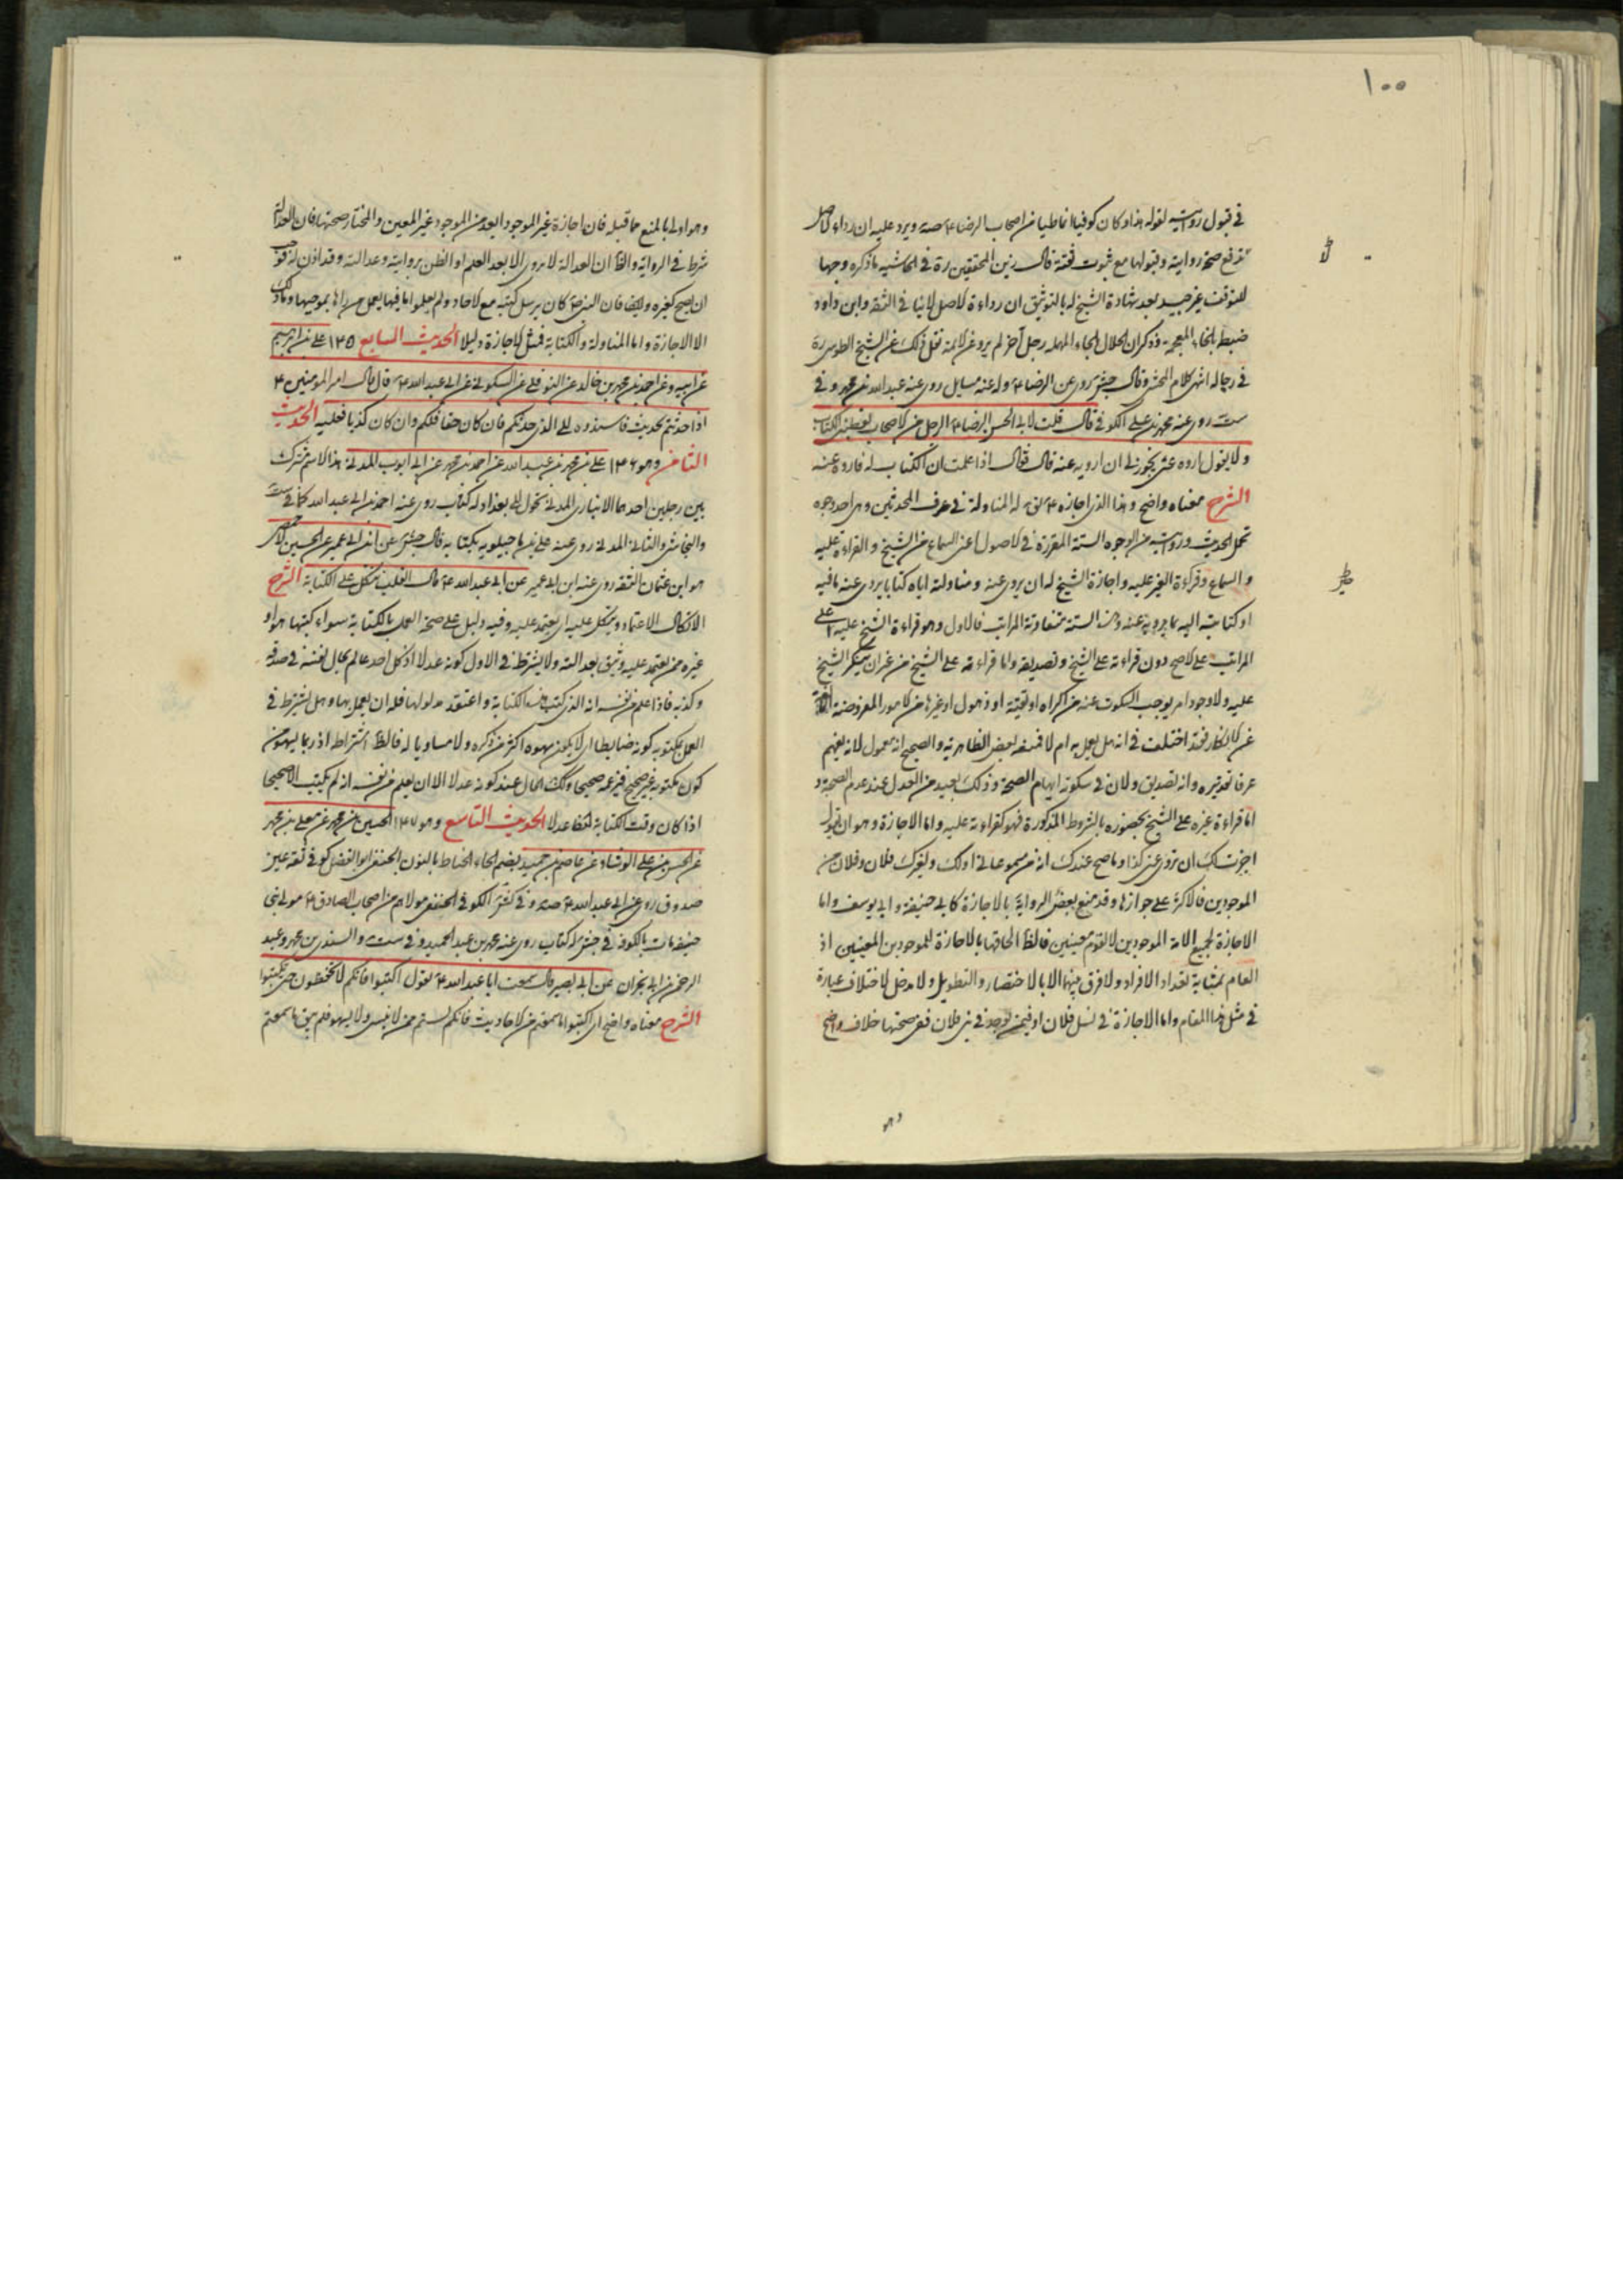 ١٠٠
في قبول روايته لقوله هذا وكان كوفيا انماطيا من اصحاب الرضا ع صه ويرد عليه ان رداءة الاصل
صحة روايته وقبولها مع ثبوت ثقته قال زين المحققين ره في الحاشيه ما ذكره وجها
للتوقف غير جيد بعد شهادة الشيخ له بالتوثيق ان رداءة الاصل لا ينافي الثقه وابن داود
ضبطه بالخاء المعجمه وذكر ان الحلال بالحاء المهمله رجل آخر لم يرو عن الائمة نقل ذلك عن الشيخ الطوسي ره
في رجاله انتهى كلام المحشي وقال جش روى عن الرضا ع وله عنه مسايل روى عنه عبد الله بن محمد وفي
ست روى عنه محمد بن علي الكوفي قال قلت لابي الحسن الرضا ع الرجل من اصحابنا يعطيني الكتاب
ولا يقول اروه عني يجوز لي ان ارويه عنه قال فقال اذا علمت ان الكتاب له فاروه عنه
الشرح معناه واضح وهذا الذي اجازه ع له المناولة في عرف المحدثين وهي احد وجوه
تحمل الحديث وروايته من الوجوه الستة المقررة في الاصول اعني السماع من الشيخ والقراءة عليه
والسماع وقراءة الغير عليه واجازة الشيخ له ان يروي عنه ومناولته اياه كتابا يروي عنه ما فيه
او كتابته اليه بما يرويه عنه وهذه الستة متفاوتة المراتب فالاول وهو قراءة الشيخ عليه اعلى
المراتب على الاصح دون قراءته على الشيخ وتصديقه واما قراءته على الشيخ من غير ان ينكر الشيخ
عليه ولا وجود امر يوجب السكوت عنه من اكراه او تقية او ذهول او غيرها من الامور المفروضة
عن الانكار فقد اختلفت في انه هل يعمل به ام لا فمنعه بعض الظاهرية والصحيح انه معمول لانه يفهم
عرفا تقديره وانه تصديق ولان في سكوته ايهام الصحة وذلك بعيد من العدل عند عدم الصحة و
اما قراءة غيره على الشيخ بحضوره بالشروط المذكورة فهو كقراءته عليه واما الاجازة وهو ان يقول
اجزت لك ان تروي عني كذا وما صح عندك انه من مسموعاتي او لك ولغيرك فلان وفلان من
الموجودين فالاكثر على جوازها وقد منع بعض الرواية بالاجازة كابي حنيفة وابي يوسف واما
الاجازة لجميع الامة الموجودين لا لقوم معينين فالظ الحاقها بالاجازة للموجودين المعينين اذ
العام بمثابة تعداد الافراد ولا فرق بينهما الا بالاختصار والتطويل ولا مدخل لاختلاف عبارة
في مثل هذا المقام واما الاجازة في نسل فلان او فيمن يوجد في بني فلان ففي صحتها خلاف واضح
وهو
وهو اولى بالمنع مما قبله فان اجازة غير الموجود ابعد من الموجود غير المعين والمختار صحتها فان العدالة
شرط في الرواية والظ ان العدالة لا يروي الا بعد العلم او الظن بروايته وعدالته وقد اذن له فوجب
ان يصح كغيره وايضا فان النبي ص كان يرسل كتبه مع الاحاد ولم يعلموا ما فيها ليعمل من راها بموجبها وما ذلك
الا الاجازة واما المناولة والكتابة فمثل الاجازة دليلا الحديث السابع ١٣٥ علي بن ابراهيم
عن ابيه وعن احمد بن محمد بن خالد عن النوفلي عن السكوني عن ابي عبد الله ع قال قال امير المومنين ع
اذا حدثتم بحديث فاسندوه الى الذي حدثكم فان كان حقا فلكم وان كان كذبا فعليه الحديث
الثامن وهو ١٣٦ علي بن محمد بن عبد الله عن احمد بن محمد عن ابي ايوب المدني هذا الاسم مشترك
بين رجلين احدهما الانباري المدني تحول الى بغداد له كتاب روى عنه احمد بن ابي عبد الله كما في ست
والنجاشي والثاني المدني روى عنه علي بن ماجيلويه بكتابه قال جش عن ابن ابي عمير عن الحسين الاحمسي
هو ابن عثمان الثقه روى عنه ابن ابي عمير عن ابي عبد الله ع قال القلب يتكل على الكتابة الشرح
الاتكال الاعتماد ويتكل عليه اي يعتمد عليه وفيه دليل على صحة العمل بالكتابة سواء كتبها هو او
غيره ممن يعتمد عليه ويثق بعدالته ولا يشترط في الاول كونه عدلا اذ كل احد عالم بحال نفسه في صدقه
وكذبه فاذا علم من نفسه انه الذي كتب هذه الكتابة واعتقد مدلولها فله ان يعمل بها وهل يشترط في
العمل بمكتوبه كونه ضابطا اي لا يكون سهوه اكثر من ذكره ولا مساويا له فالظ اشتراطه اذ ربما يسهو من
كون مكتوبه غير صحيح فيزعمه صحيحا وكك الحال عند كونه عدلا الا ان يعلم من نفسه انه لم يكتب الا صحيحا
اذا كان وقت الكتابة متيقظا عدلا الحديث التاسع وهو ١٣٧ الحسين بن محمد عن معلى بن محمد
عن الحسن بن علي الوشاء عن عاصم بن حميد بضم الحاء الحناط بالنون الحنفي ابو الفضل كوفي ثقه عين
صدوق روى عن ابي عبد الله ع صه وفي كش الكوفي الحنفي مولاهم من اصحاب الصادق ع مولى بني
حنيفه مات بالكوفه في جش له كتاب روى عنه محمد بن عبد الحميد وفي ست والسندي بن محمد وعبد
الرحمن بن ابي نجران عن ابي بصير قال سمعت ابا عبد الله ع يقول اكتبوا فانكم لا تحفظون حتى تكتبوا
الشرح معناه واضح اي اكتبوا ما سمعتم من الاحاديث فانكم لستم ممن لا ينسى ولا يسهو فلم يبق ما سمعتم